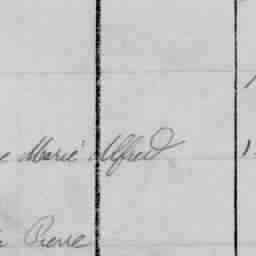 Marie Alfred
Pierre